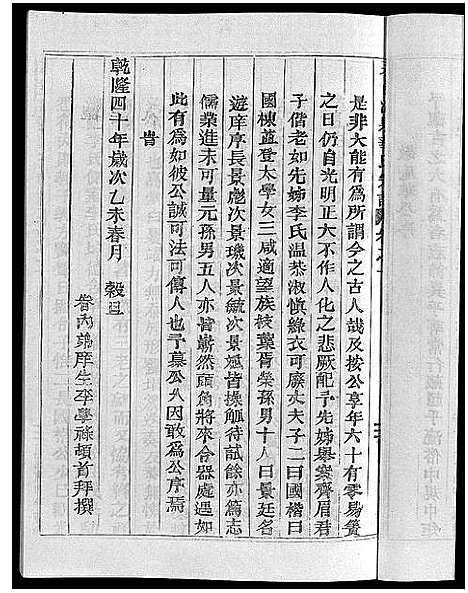 是非大能有爲所謂今之古人哉及按公享年六十有零易簀
之日仍自光明正大不作人化之悲厥配予先姊舉案齊眉君
子偕老如先姊李氏溫恭淑慎綠衣可廢丈夫子二曰國楷曰
國棟並登太學女三咸適望族枝葉胥榮孫男十人曰景廷名
遊庠序長景彪次景璣次景毓次景姚皆操觚待試餘亦篤志
儒業進未可量元孫男五人亦皆嶄然頭角將來令器處遇如
此有爲如彼公誠可法可傳人也予慕公久因敢爲公序焉
旹
乾隆四十年歲次乙未春月 穀旦
眷內弟庠生李學祿頓首拜撰